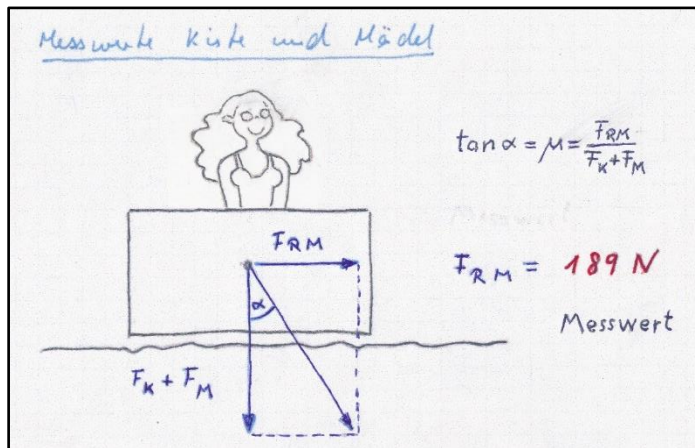 Messwerte Kiste und Mädel
tan α = μ = F_RM / (F_K + F_M)
F_RM
F_RM = 189 N
α
Messwert
F_K + F_M